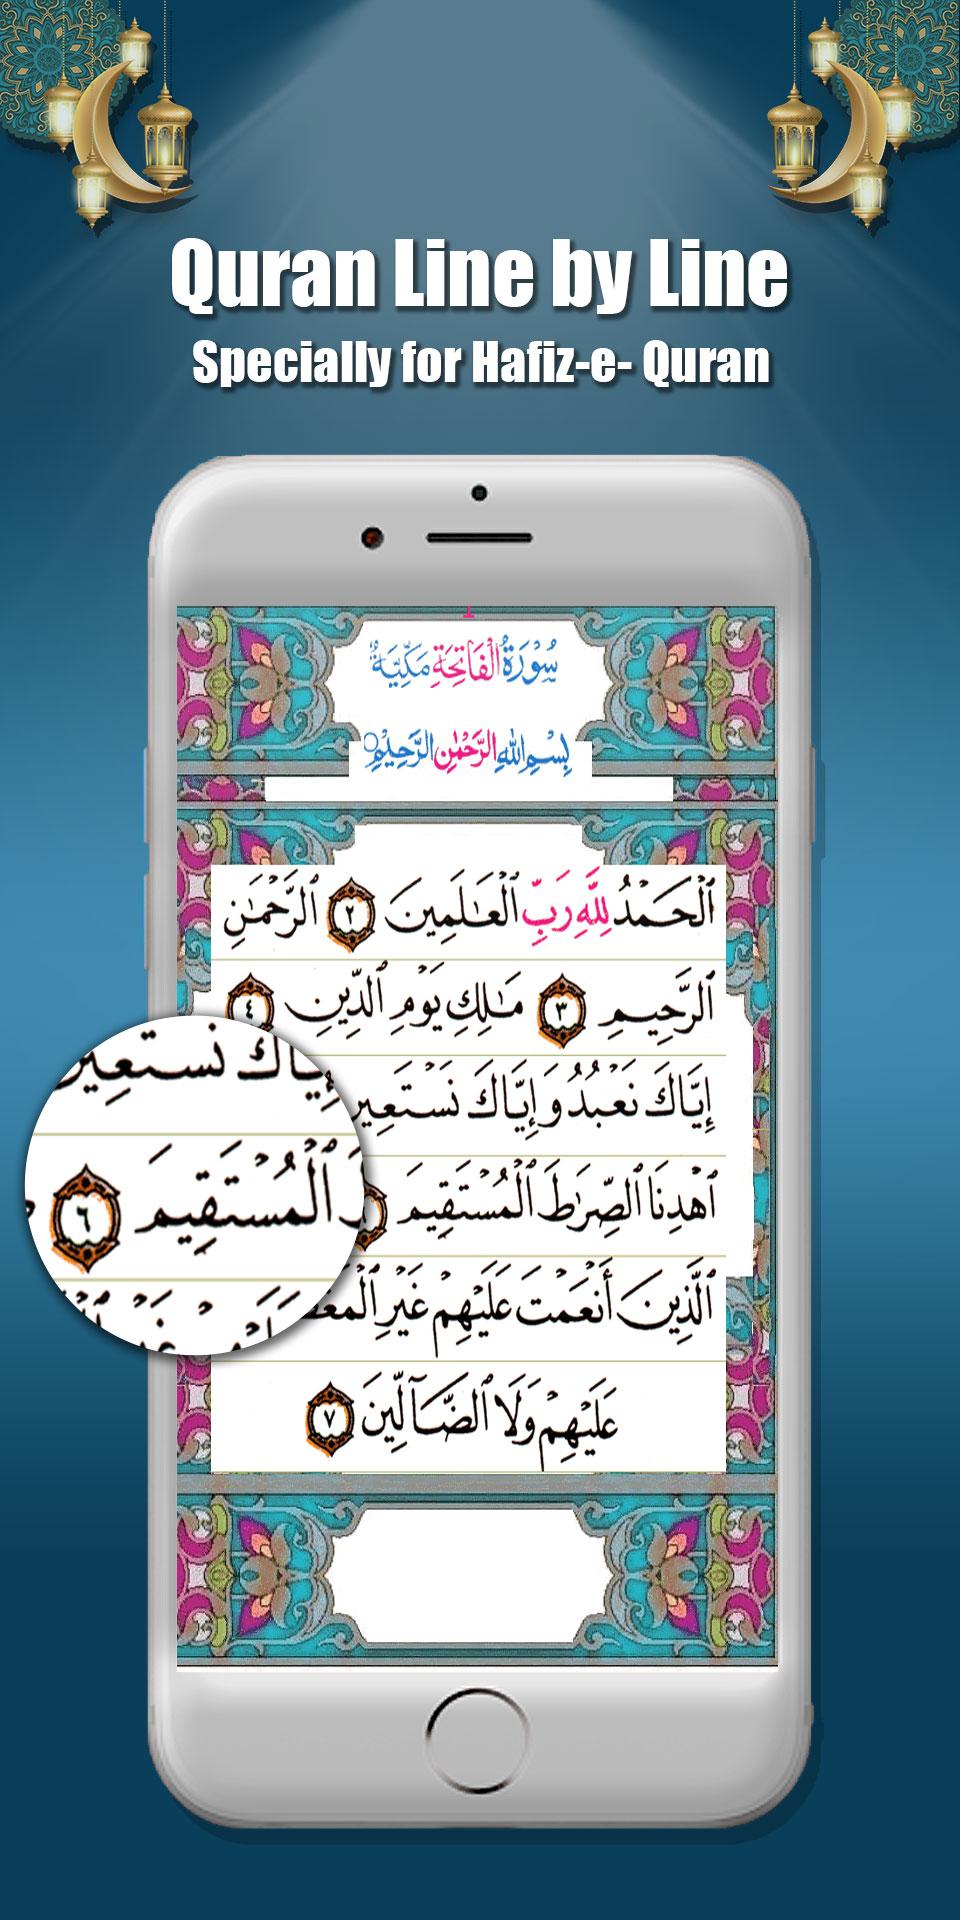 Quran Line by Line
Specially for Hafiz-e- Quran
1
سُوْرَةُ الْفَاتِحَةِ مَكِّيَّةٌ
بِسْمِ اللّٰهِ الرَّحْمٰنِ الرَّحِيْمِ
ٱلْحَمْدُ لِلَّهِ رَبِّ ٱلْعَـٰلَمِينَ ٢ ٱلرَّحْمَـٰنِ
ٱلرَّحِيمِ ٣ مَـٰلِكِ يَوْمِ ٱلدِّينِ ٤
إِيَّاكَ نَعْبُدُ وَإِيَّاكَ نَسْتَعِين
ٱهْدِنَا ٱلصِّرَٰطَ ٱلْمُسْتَقِيمَ
ٱلَّذِينَ أَنْعَمْتَ عَلَيْهِمْ غَيْرِ
عَلَيْهِمْ وَلَا ٱلضَّآلِّينَ ٧
إِيَّاكَ نَسْتَعِين
ٱلْمُسْتَقِيمَ ٦